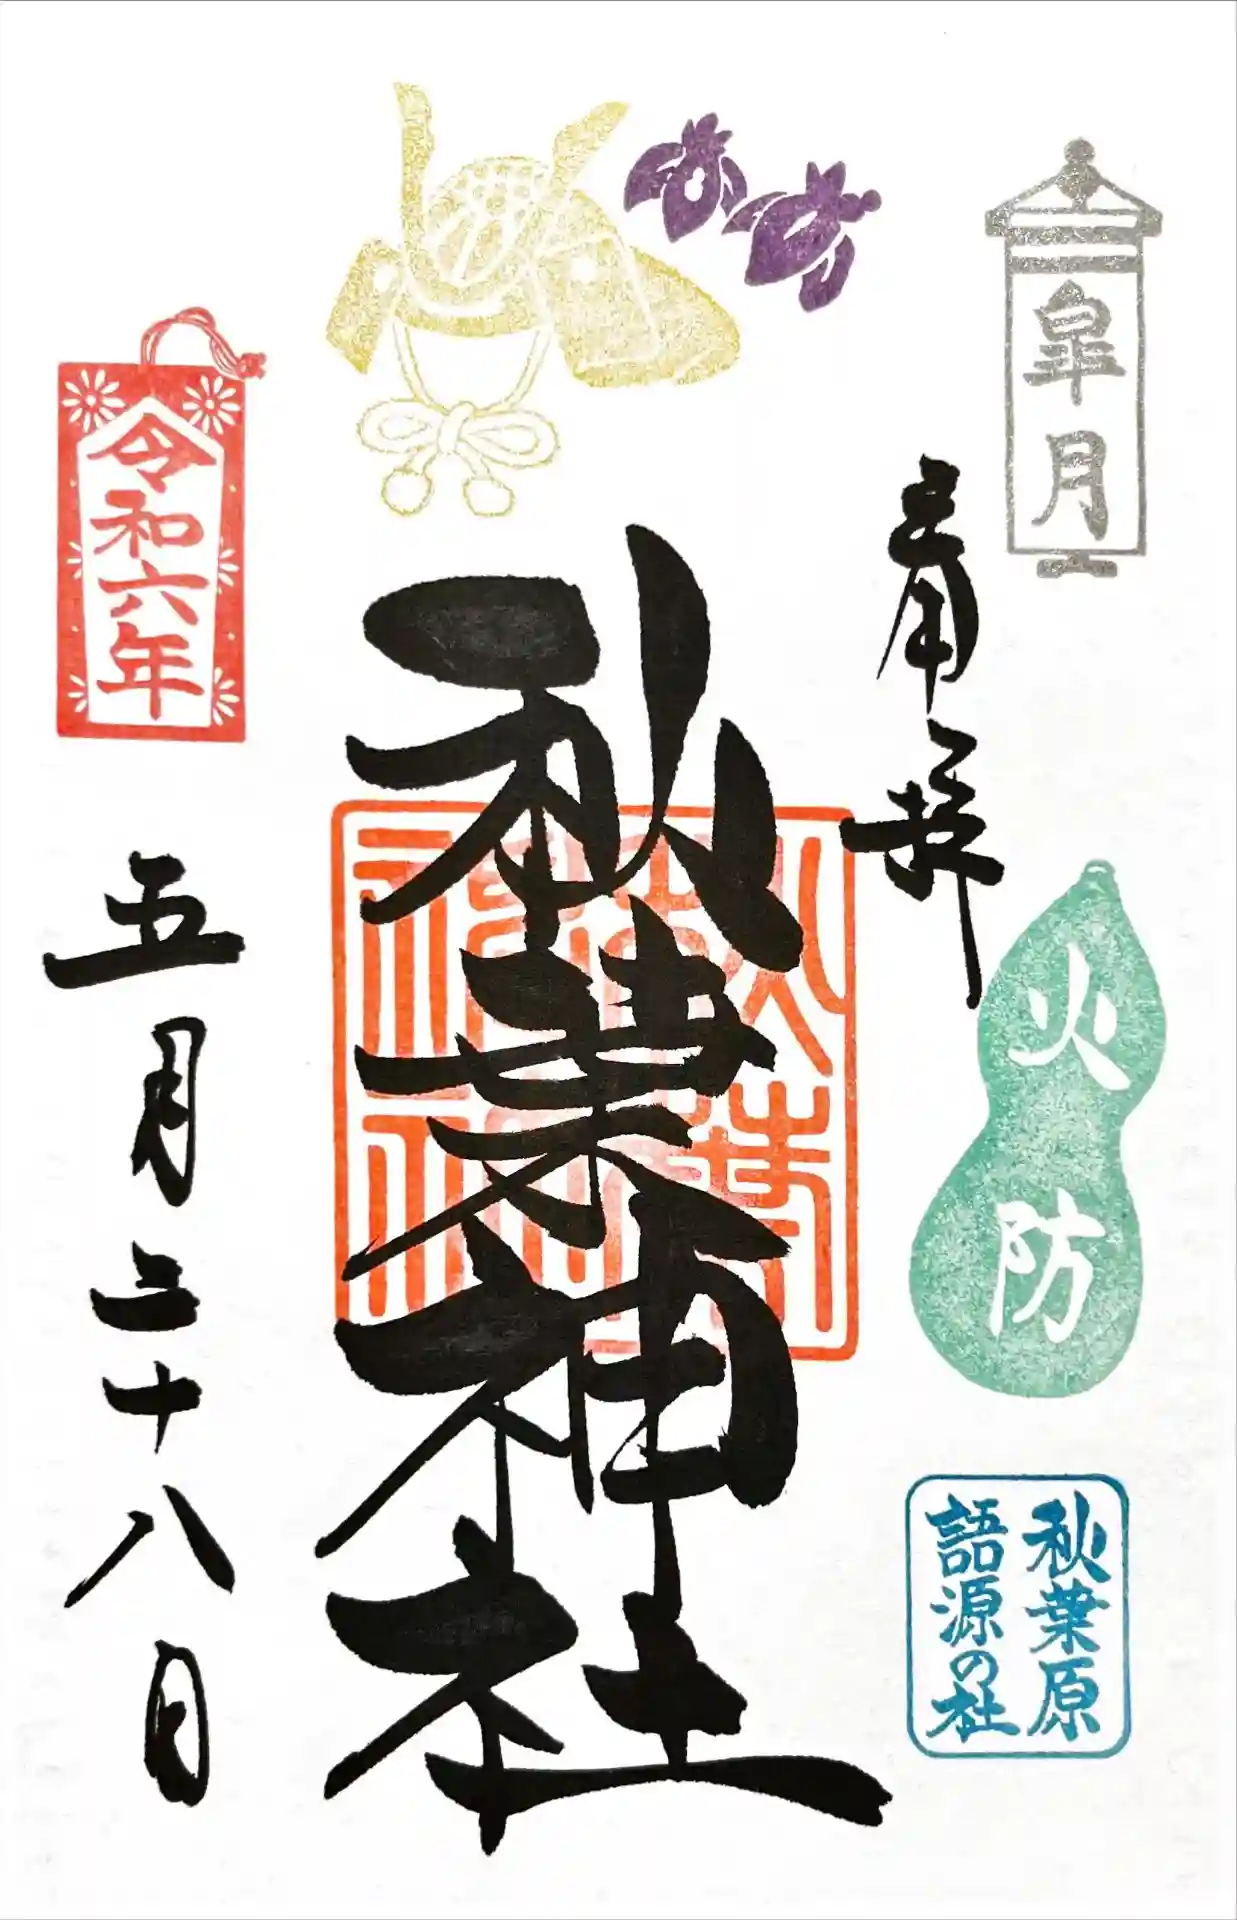 皐月
青角拝
火防
秋葉原
語源の社
秋葉神社
令和六年
五月二十八日